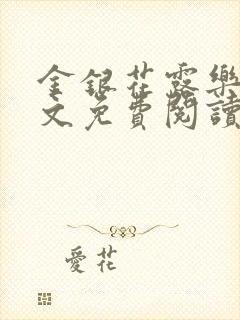 金銀花露樂
文免費閱讀
愛花